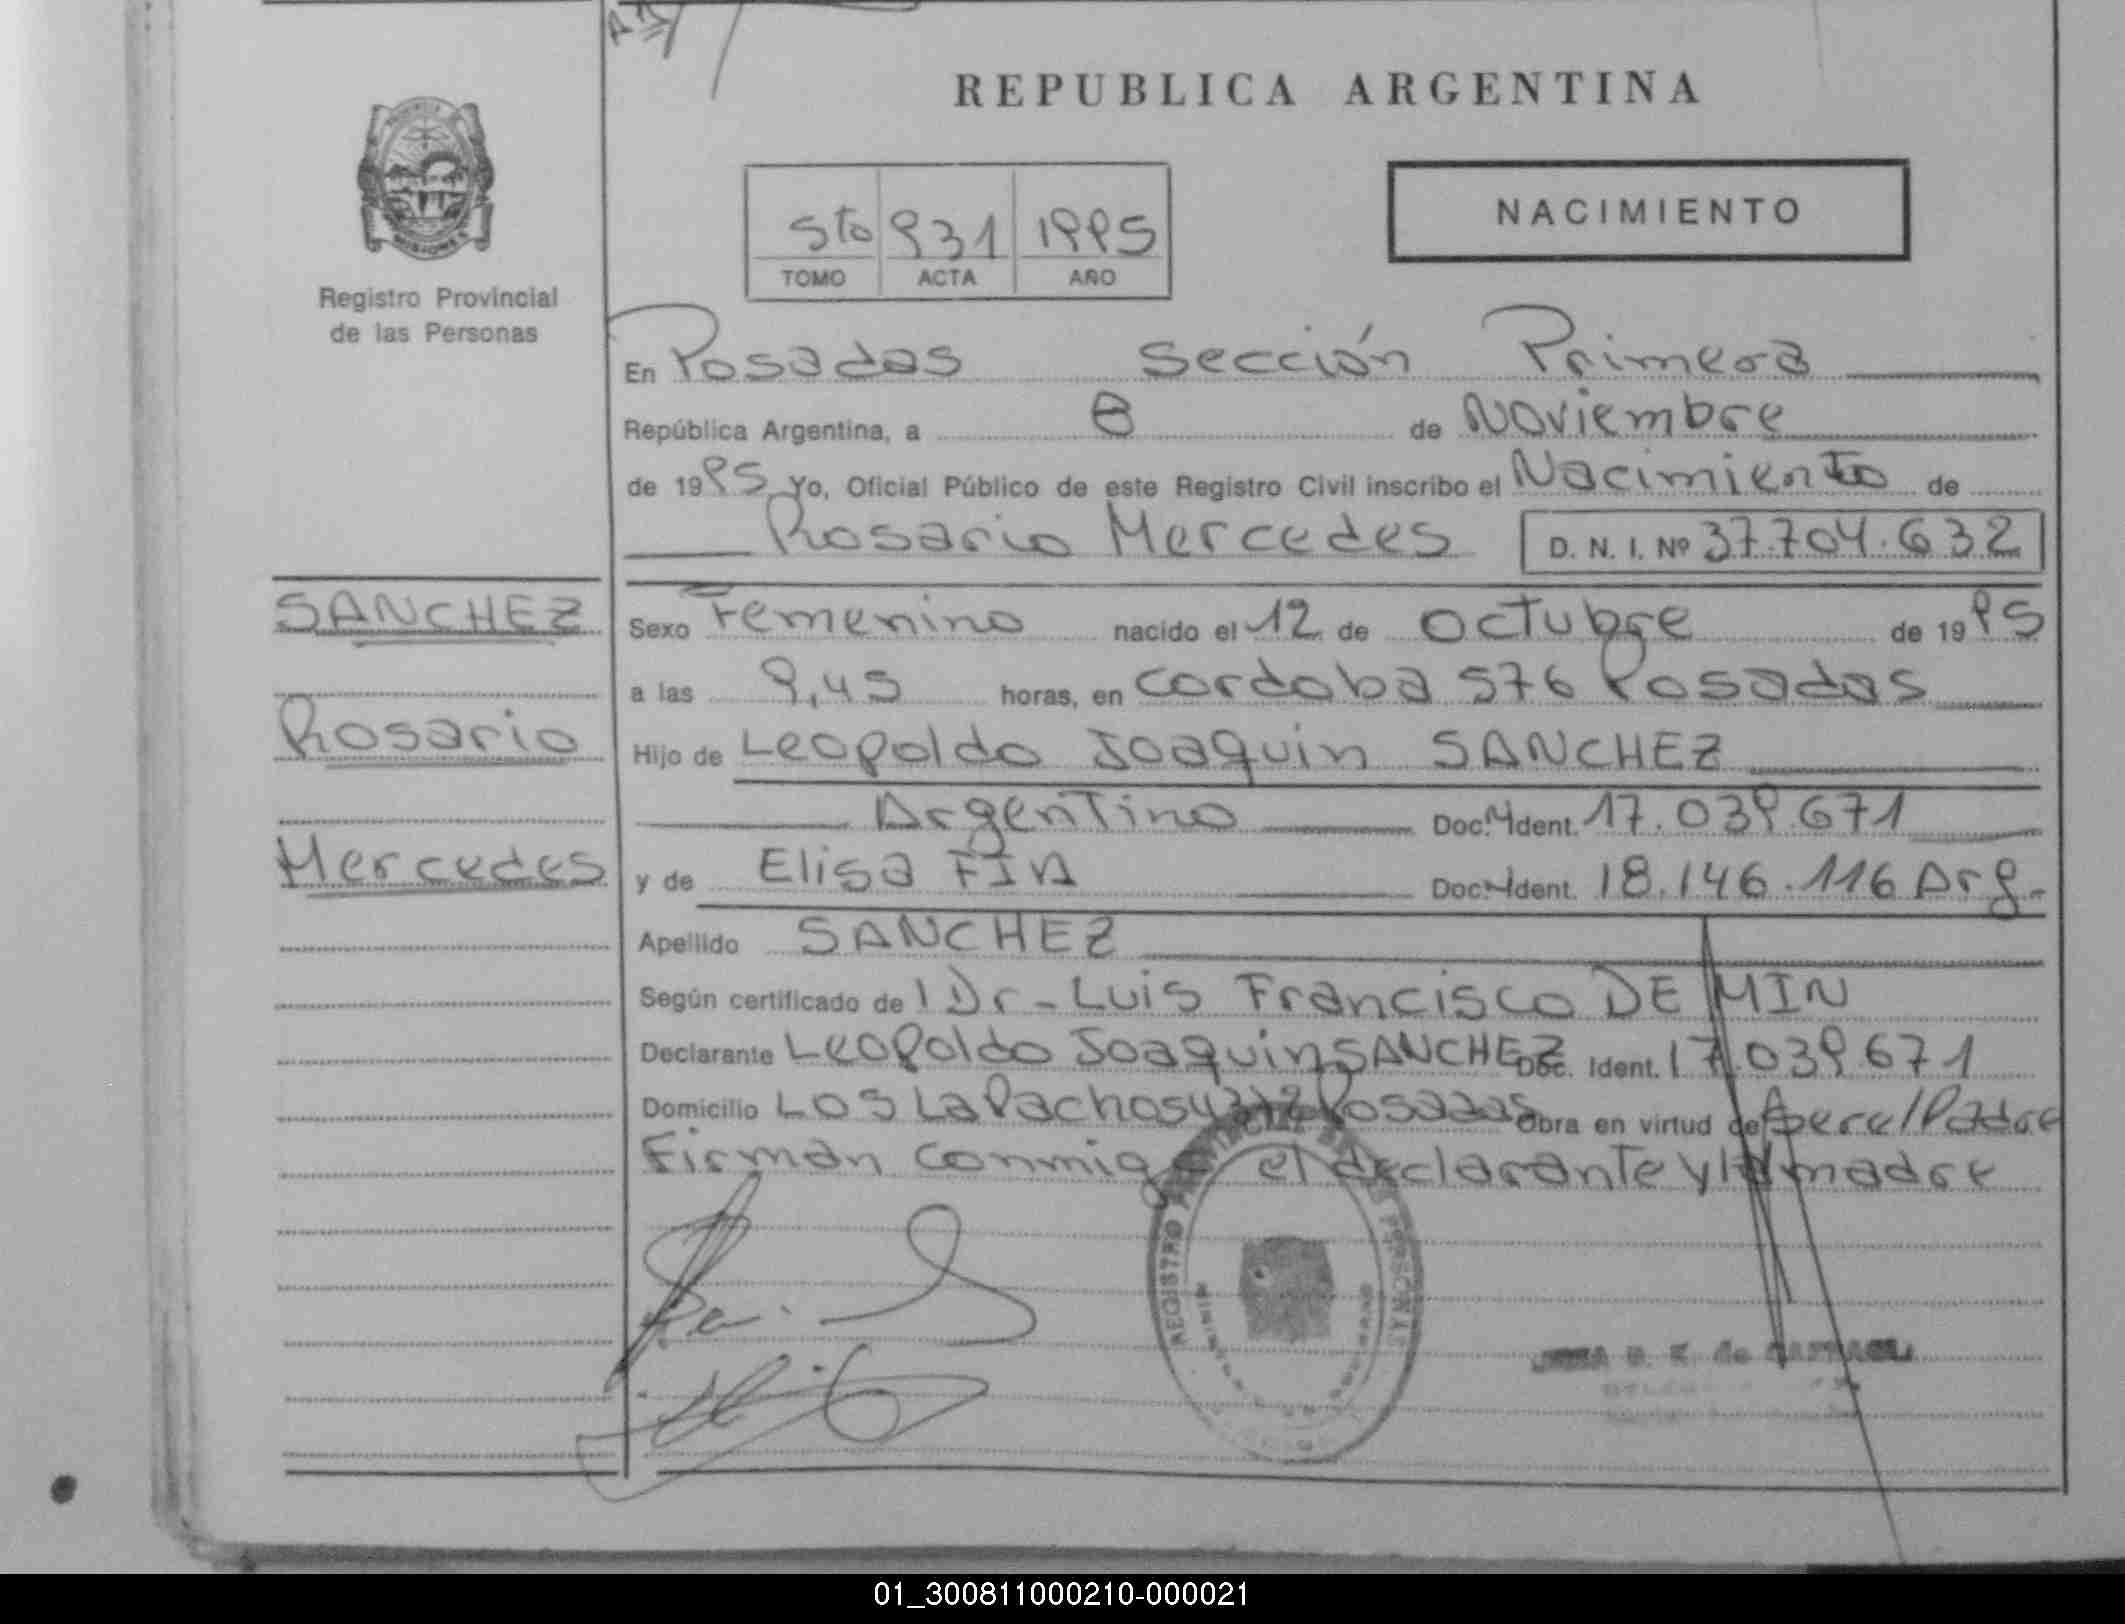 REPUBLICA ARGENTINA
Registro Provincial
de las Personas
5to 931 1995
TOMO ACTA AÑO
NACIMIENTO
En Posadas Sección Primera
República Argentina, a 8 de Noviembre
de 1995 Yo, Oficial Público de este Registro Civil inscribo el Nacimiento de
Rosario Mercedes D. N. I. Nº 37.704.632
SANCHEZ
Rosario
Mercedes
Sexo Femenino nacido el 12 de Octubre de 1995
a las 9,45 horas, en Cordoba 576 Posadas
Hijo de Leopoldo Joaquin SANCHEZ
Argentino Doc. Ident. 17.039.671
y de Elisa FIN Doc. Ident. 18.146.116 Arg.
Apellido SANCHEZ
Según certificado de l Dr - Luis Francisco DE MIN
Declarante Leopoldo Joaquin SANCHEZ Doc. Ident. 17.039.671
Domicilio Los Lapachos Posadas Obra en virtud de Ser el Padre
Firman conmigo el declarante y la madre
REGISTRO PERSONAS
01_300811000210-000021